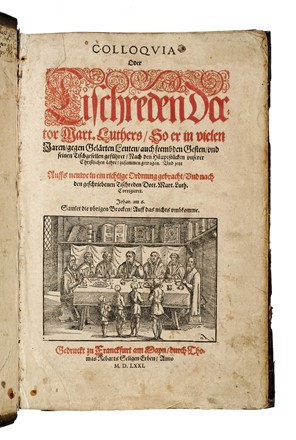 COLLOQVIA
Oder
Tischreden Doc-
tor Mart. Luthers/ So er in vielen
Jaren/ gegen Gelärten Leuten/ auch frembden Gesten/ vnd
seinen Tischgesellen geführet/ Nach den Häuptstücken vnserer
Christlichen Lehre/ zusammen getragen. Vnd jetzt
Auffs newe in ein richtige Ordnung gebracht/ Vnd nach
den geschriebenen Tischreden Doct. Mart. Luth.
Corrigieret.
Johan. am 6.
Samlet die vbrigen Brocken/ Auff das nichts vmbkomme.
Gedruckt zu Franckfurt am Mayn/ durch Tho-
mas Rebarts Seligen Erben/ Anno
M. D. LXXI.